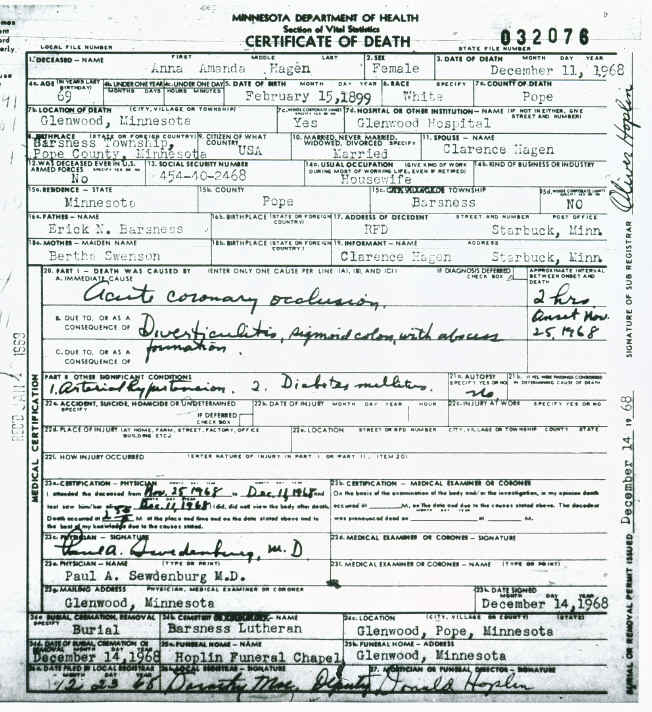 MINNESOTA DEPARTMENT OF HEALTH
Section of Vital Statistics
CERTIFICATE OF DEATH
032076
LOCAL FILE NUMBER
STATE FILE NUMBER
1. DECEASED — NAME FIRST MIDDLE LAST 2. SEX 3. DATE OF DEATH MONTH DAY YEAR
Anna Amanda Hagen Female December 11, 1968
4a. AGE (IN YEARS LAST BIRTHDAY) 4b. UNDER ONE YEAR 4c. UNDER ONE DAY 5. DATE OF BIRTH MONTH DAY YEAR 6. RACE SPECIFY 7a. COUNTY OF DEATH
MONTHS DAYS HOURS MINUTES
69 February 15, 1899 White Pope
7b. LOCATION OF DEATH (CITY, VILLAGE OR TOWNSHIP) 7d. HOSPITAL OR OTHER INSTITUTION — NAME (IF NOT IN EITHER, GIVE STREET AND NUMBER)
Glenwood, Minnesota Yes Glenwood Hospital
8. BIRTHPLACE (STATE OR FOREIGN COUNTRY) 9. CITIZEN OF WHAT COUNTRY 10. MARRIED, NEVER MARRIED, WIDOWED, DIVORCED SPECIFY 11. SPOUSE — NAME
Barsness Township,
Pope County, Minnesota USA Married Clarence Hagen
12. WAS DECEASED EVER IN U.S. ARMED FORCES 13. SOCIAL SECURITY NUMBER 14a. USUAL OCCUPATION (GIVE KIND OF WORK DURING MOST OF WORKING LIFE, EVEN IF RETIRED) 14b. KIND OF BUSINESS OR INDUSTRY
No 454-40-2468 Housewife
15a. RESIDENCE — STATE 15b. COUNTY 15c. TOWNSHIP
Minnesota Pope Barsness NO
16a. FATHER — NAME 16b. BIRTHPLACE (STATE OR FOREIGN COUNTRY) 17. ADDRESS OF DECEDENT STREET AND NUMBER POST OFFICE
Erick N. Barsness RFD Starbuck, Minn
18a. MOTHER — MAIDEN NAME 18b. BIRTHPLACE (STATE OR FOREIGN COUNTRY) 19. INFORMANT — NAME ADDRESS
Bertha Swenson Clarence Hagen Starbuck, Minn
20. PART I — DEATH WAS CAUSED BY (ENTER ONLY ONE CAUSE PER LINE (A), (B), AND (C)) IF DIAGNOSIS DEFERRED CHECK BOX APPROXIMATE INTERVAL BETWEEN ONSET AND DEATH
A. IMMEDIATE CAUSE
Acute coronary occlusion. 2 hrs
B. DUE TO, OR AS A CONSEQUENCE OF Diverticulitis, sigmoid colon, with abscess formation. Onset Nov. 25, 1968
C. DUE TO, OR AS A CONSEQUENCE OF
PART II OTHER SIGNIFICANT CONDITIONS 21a. AUTOPSY SPECIFY YES OR NO 21b. IF YES, WERE FINDINGS CONSIDERED IN DETERMINING CAUSE OF DEATH
1. Arterial hypertension. 2. Diabetes mellitus. No
22a. ACCIDENT, SUICIDE, HOMICIDE OR UNDETERMINED SPECIFY 22b. DATE OF INJURY MONTH DAY YEAR HOUR 22c. INJURY AT WORK SPECIFY YES OR NO
IF DEFERRED CHECK BOX
22d. PLACE OF INJURY (AT HOME, FARM, STREET, FACTORY, OFFICE BUILDING ETC.) 22e. LOCATION STREET OR RFD NUMBER CITY, VILLAGE OR TOWNSHIP COUNTY STATE
22f. HOW INJURY OCCURRED (ENTER NATURE OF INJURY IN PART I OR PART II, ITEM 20)
23a. CERTIFICATION — PHYSICIAN 23b. CERTIFICATION — MEDICAL EXAMINER OR CORONER
I attended the deceased from Nov. 25 1968 to Dec. 11 1968 and last saw him/her alive Dec. 11, 1968 I did, did not view the body after death.
Death occurred at M at the place and time and on the date stated above and to the best of my knowledge due to the causes stated.
On the basis of the examination of the body and/or the investigation, in my opinion death occurred at M, on the date and due to the causes stated above. The decedent was pronounced dead on at M.
23c. PHYSICIAN — SIGNATURE 23d. MEDICAL EXAMINER OR CORONER — SIGNATURE
Paul A. Swedenburg, M.D
23e. PHYSICIAN — NAME (TYPE OR PRINT) 23f. MEDICAL EXAMINER OR CORONER — NAME (TYPE OR PRINT)
Paul A. Sewdenburg M.D.
23g. MAILING ADDRESS PHYSICIAN, MEDICAL EXAMINER OR CORONER 23h. DATE SIGNED MONTH DAY YEAR
Glenwood, Minnesota December 14, 1968
24a. BURIAL, CREMATION, REMOVAL SPECIFY 24b. CEMETERY 24c. LOCATION (CITY, VILLAGE OR COUNTY) (STATE)
Burial Barsness Lutheran Glenwood, Pope, Minnesota
24d. DATE OF BURIAL, CREMATION OR REMOVAL MONTH DAY YEAR 25a. FUNERAL HOME — NAME 25b. FUNERAL HOME — ADDRESS
December 14, 1968 Hoplin Funeral Chapel Glenwood, Minnesota
26a. DATE FILED BY LOCAL REGISTRAR 26b. LOCAL REGISTRAR — SIGNATURE 27. MORTICIAN OR FUNERAL DIRECTOR — SIGNATURE
12 23 68 Deputy Donald Hoplin
MEDICAL CERTIFICATION
REC'D JAN
SIGNATURE OF SUB REGISTRAR
Hoplin
BURIAL OR REMOVAL PERMIT ISSUED December 14 19 68